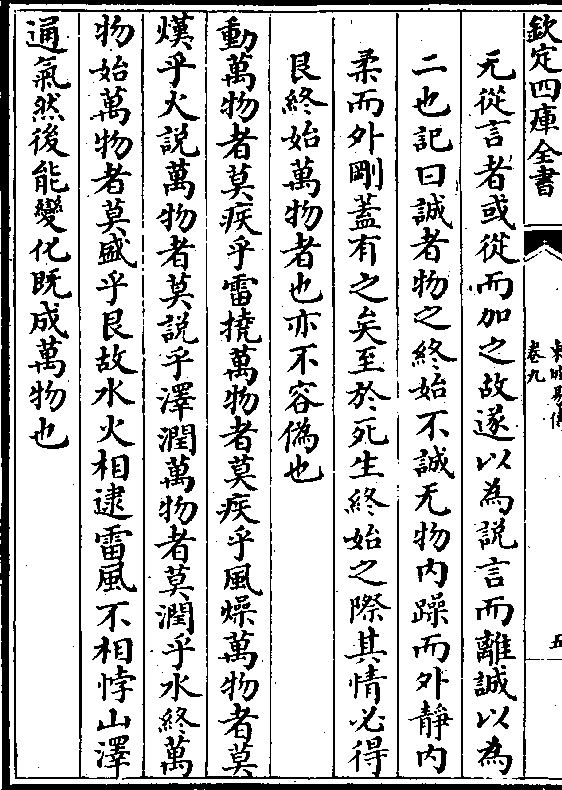 欽定四庫全書
卷九
五
无從言者或從而加之故遂以為説言而離誠以為
二也記曰誠者物之終始不誠无物内躁而外静内
柔而外剛蓋有之矣至於死生終始之際其情必得
艮終始萬物者也亦不容僞也
動萬物者莫疾乎雷撓萬物者莫疾乎風燥萬物者莫
熯乎火説萬物者莫説乎澤潤萬物者莫潤乎水終萬
物始萬物者莫盛乎艮故水火相逮雷風不相悖山澤
通氣然後能變化既成萬物也